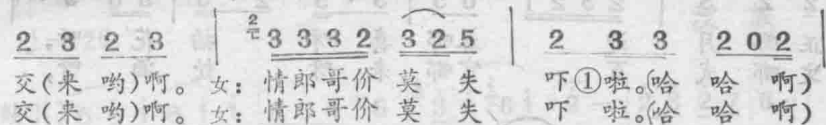 2 3 2 3 | 2 3 3 3 2 3 2 5 | 2 3 3 2 0 2 |
交(来 哟)啊。 女: 情郎哥价 莫 失 吓①啦。(哈 哈 啊)
交(来 哟)啊。 女: 情郎哥价 莫 失 下 啦。(哈 哈 啊)